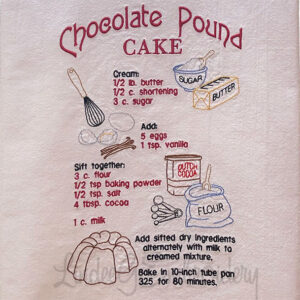 Chocolate Pound
CAKE
Cream:
1/2 lb. butter
1/2 c. shortening
3 c. sugar
SUGAR
BUTTER
Add:
5 eggs
1 tsp. vanilla
Sift together:
3 c. flour
1/2 tsp baking powder
1/2 tsp. salt
4 tbsp. cocoa
1 c. milk
DUTCH
COCOA
FLOUR
Add sifted dry ingredients
alternately with milk to
creamed mixture.
Bake in 10-inch tube pan
325 for 80 minutes.